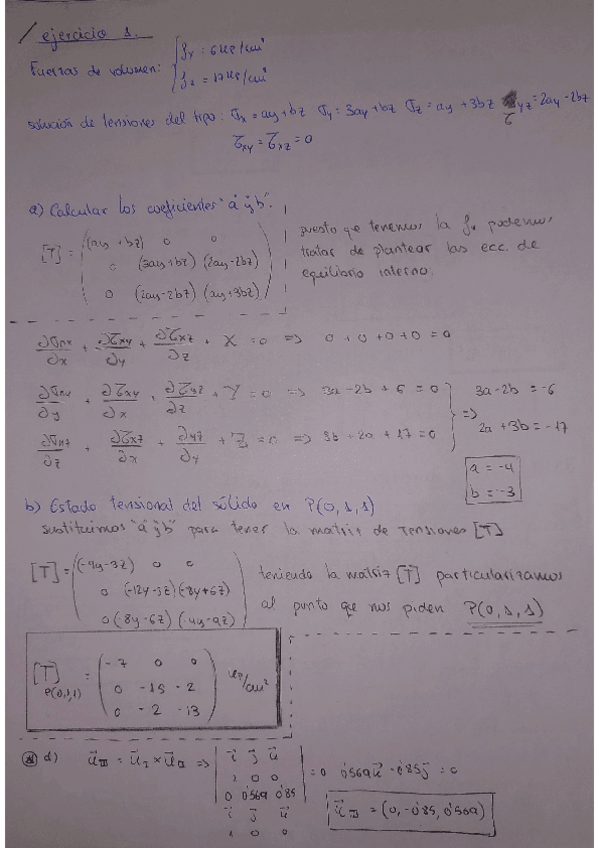 ejercicio 1.
Fuerzas de volumen: { fy = 6 kp/cm³
fz = 17 kp/cm³
solución de tensiones del tipo: σx = ay + bz σy = 3ay + bz σz = ay + 3bz τyz = 2ay - 2bz
τxy = τxz = 0
a) Calcular los coeficientes "a" y "b".
[T] = ( (ay + bz) 0 0
0 (3ay+bz) (2ay-2bz)
0 (2ay-2bz) (ay+3bz) )
puesto que tenemos la fv podemos
tratar de plantear las ecc. de
equilibrio interno.
∂σnx/∂x + ∂τxy/∂y + ∂τxz/∂z + X = 0 => 0 + 0 + 0 + 0 = 0
∂σny/∂y + ∂τxy/∂x + ∂τyz/∂z + Y = 0 => 3a - 2b + 6 = 0
∂σnz/∂z + ∂τxz/∂x + ∂yz/∂y + Z = 0 => 3b + 2a + 17 = 0
=> 3a - 2b = -6
2a + 3b = -17
a = -4
b = -3
b) Estado tensional del sólido en P(0,1,1)
sustituimos "a" y "b" para tener la matriz de tensiones [T]
[T] = ( (-4y-3z) 0 0
0 (-12y-3z) (-8y+6z)
0 (-8y-6z) (-4y-9z) )
teniendo la matriz [T] particularizamos
al punto que nos piden P(0,1,1)
[T] P(0,1,1) = ( -7 0 0
0 -15 -2
0 -2 -13 ) kp/cm²
d) u⃗III = u⃗I × u⃗II => | i⃗ j⃗ u⃗
1 0 0
0 0'569 0'85 | = 0 0'569u⃗ - 0'85j⃗ = 0
i⃗ j⃗ u⃗
1 0 0
u⃗III = (0, -0'85, 0'569)